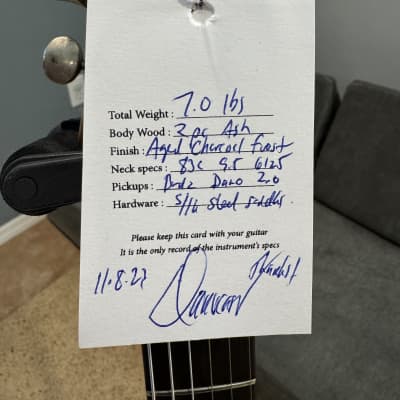 Total Weight : 7.0 lbs
Body Wood : 2 pc Ash
Finish : Aged Charcoal Frost
Neck specs : 83c 9.5 6125
Pickups : 2.0
Hardware : S/H Steel saddles
Please keep this card with your guitar
It is the only record of the instrument's specs
11.8.23